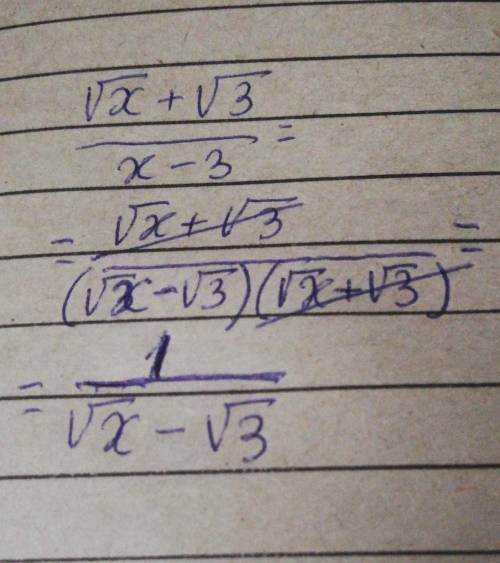 √x + √3
x - 3 =
= √x + √3
(√x - √3)(√x + √3) =
= 1
√x - √3